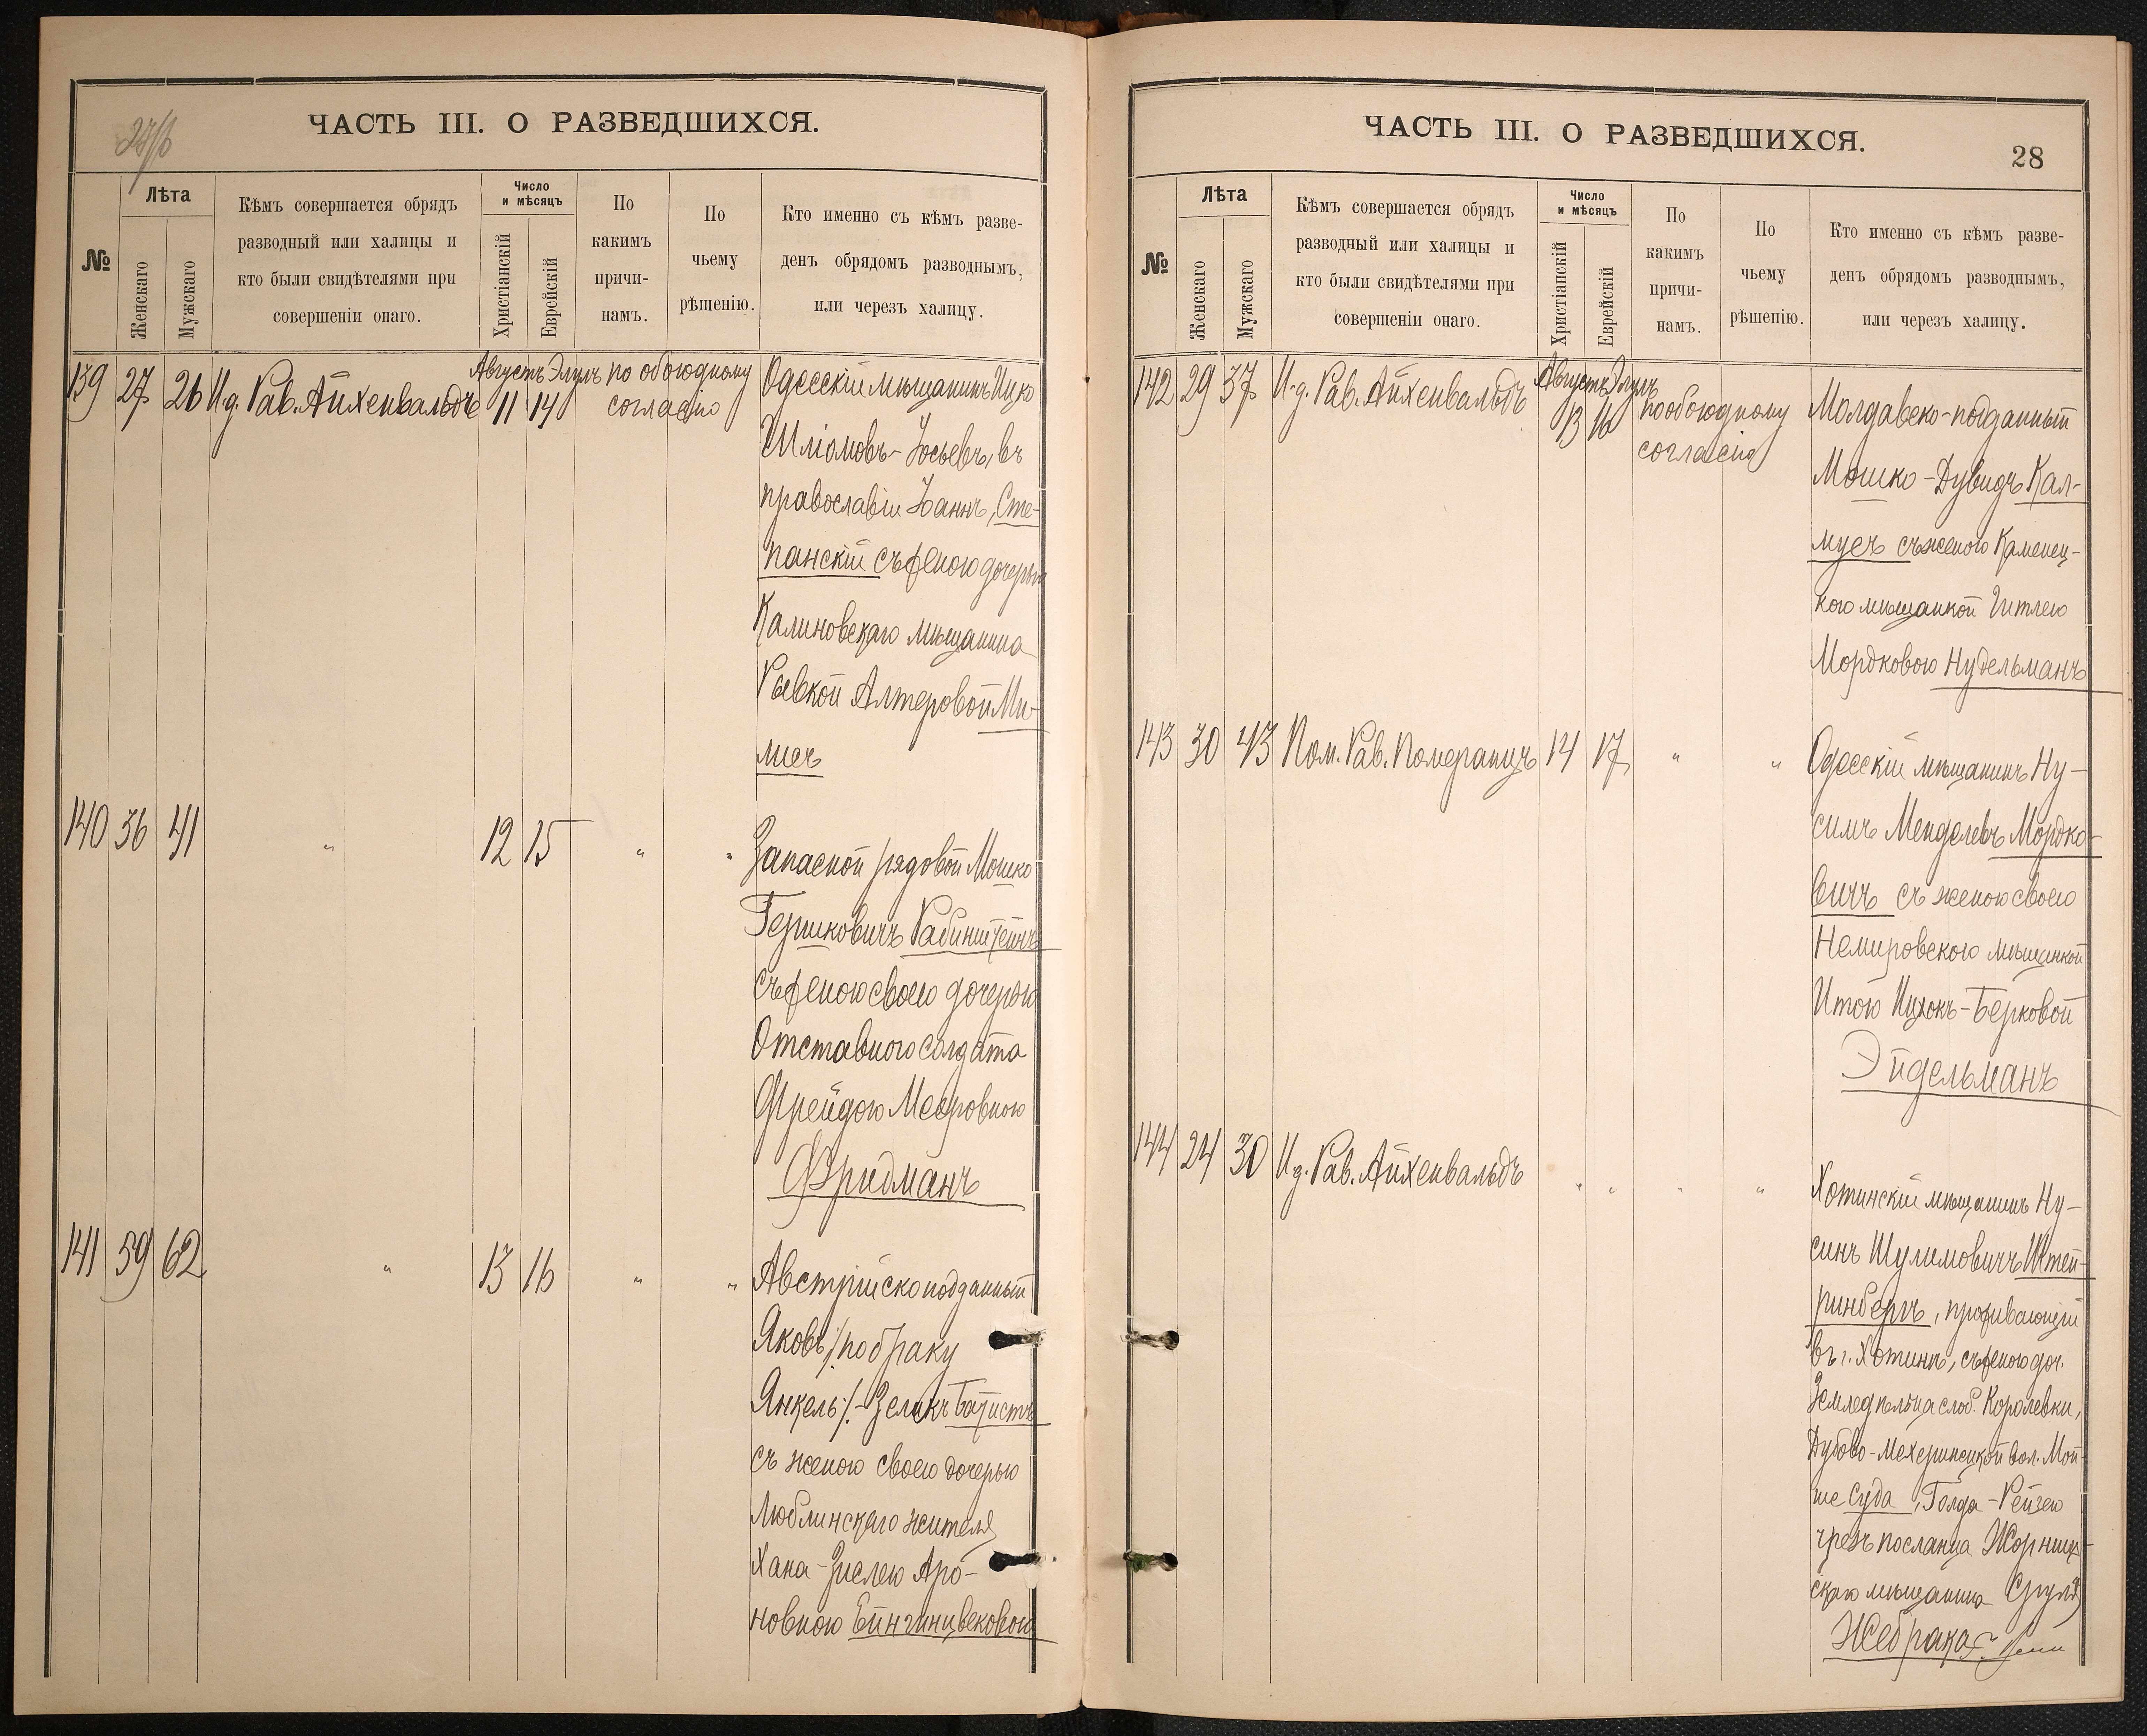 ЧАСТЬ III. О РАЗВЕДШИХСЯ.
№
Лѣта
Женскаго
Мужскаго
Кѣмъ совершается обрядъ
разводный или халицы и
кто были свидѣтелями при
совершеніи онаго.
Число
и мѣсяцъ
Христіанскій
Еврейскій
По
какимъ
причи-
намъ.
По
чьему
рѣшенію.
Кто именно съ кѣмъ разве-
денъ обрядомъ разводнымъ,
или черезъ халицу.
139 27 26 И.д. Рав. Айхенвальдъ Августъ 11 Элулъ 14 по обоюдному
согласію
Одесскій мѣщанинъ Ицко
Шліомовъ-Іосьевъ, въ
православіи Іоаннъ, Сте-
панскій съ женою дочерью
Калиновскаго мѣщанина
Рывкой Алтеровой Ми-
лисъ
140 36 41 " 12 15 " "
Запасной рядовой Мошко
Гершковичъ Рабинштейнъ
съ женою своею дочерью
Отставного солдата
Фрейдою Мееровною
Фридманъ
141 59 62 " 13 16 " "
Австрійскоподданный
Яковъ /:по браку
Янкель:/-Зеликъ Батистъ
съ женою своею дочерью
Люблинскаго жителя
Хана-Зислею Аро-
новною
ЧАСТЬ III. О РАЗВЕДШИХСЯ.
28
№
Лѣта
Женскаго
Мужскаго
Кѣмъ совершается обрядъ
разводный или халицы и
кто были свидѣтелями при
совершеніи онаго.
Число
и мѣсяцъ
Христіанскій
Еврейскій
По
какимъ
причи-
намъ.
По
чьему
рѣшенію.
Кто именно съ кѣмъ разве-
денъ обрядомъ разводнымъ,
или черезъ халицу.
142 29 37 И.д. Рав. Айхенвальдъ Августъ 13 Элулъ 16 по обоюдному
согласію
Молдавско-подданный
Мошко-Дувидъ Кал-
мусъ съ женою Каменец-
кою мѣщанкой Гитлею
Мордковою Нудельманъ
143 30 43 Пом. Рав. Померанцъ 14 17 " "
Одесскій мѣщанинъ Ну-
симъ Менделевъ Мордко-
вичъ съ женою своею
Немировскою мѣщанкой
Итою Ицхокъ-Берковой
Эйдельманъ
144 24 30 И.д. Рав. Айхенвальдъ " " " "
Хотинскій мѣщанинъ Ну-
синъ Шулимовичъ Штей-
ринбергъ, проживающій
въ г. Хотинѣ, съ женою доч.
Земледѣльца слоб. Королевки,
вол. Мой-
ше Суда, Голда-Рейзею
чрезъ посланца Жорнищ-
скаго мѣщанина Сруля
Жебрака